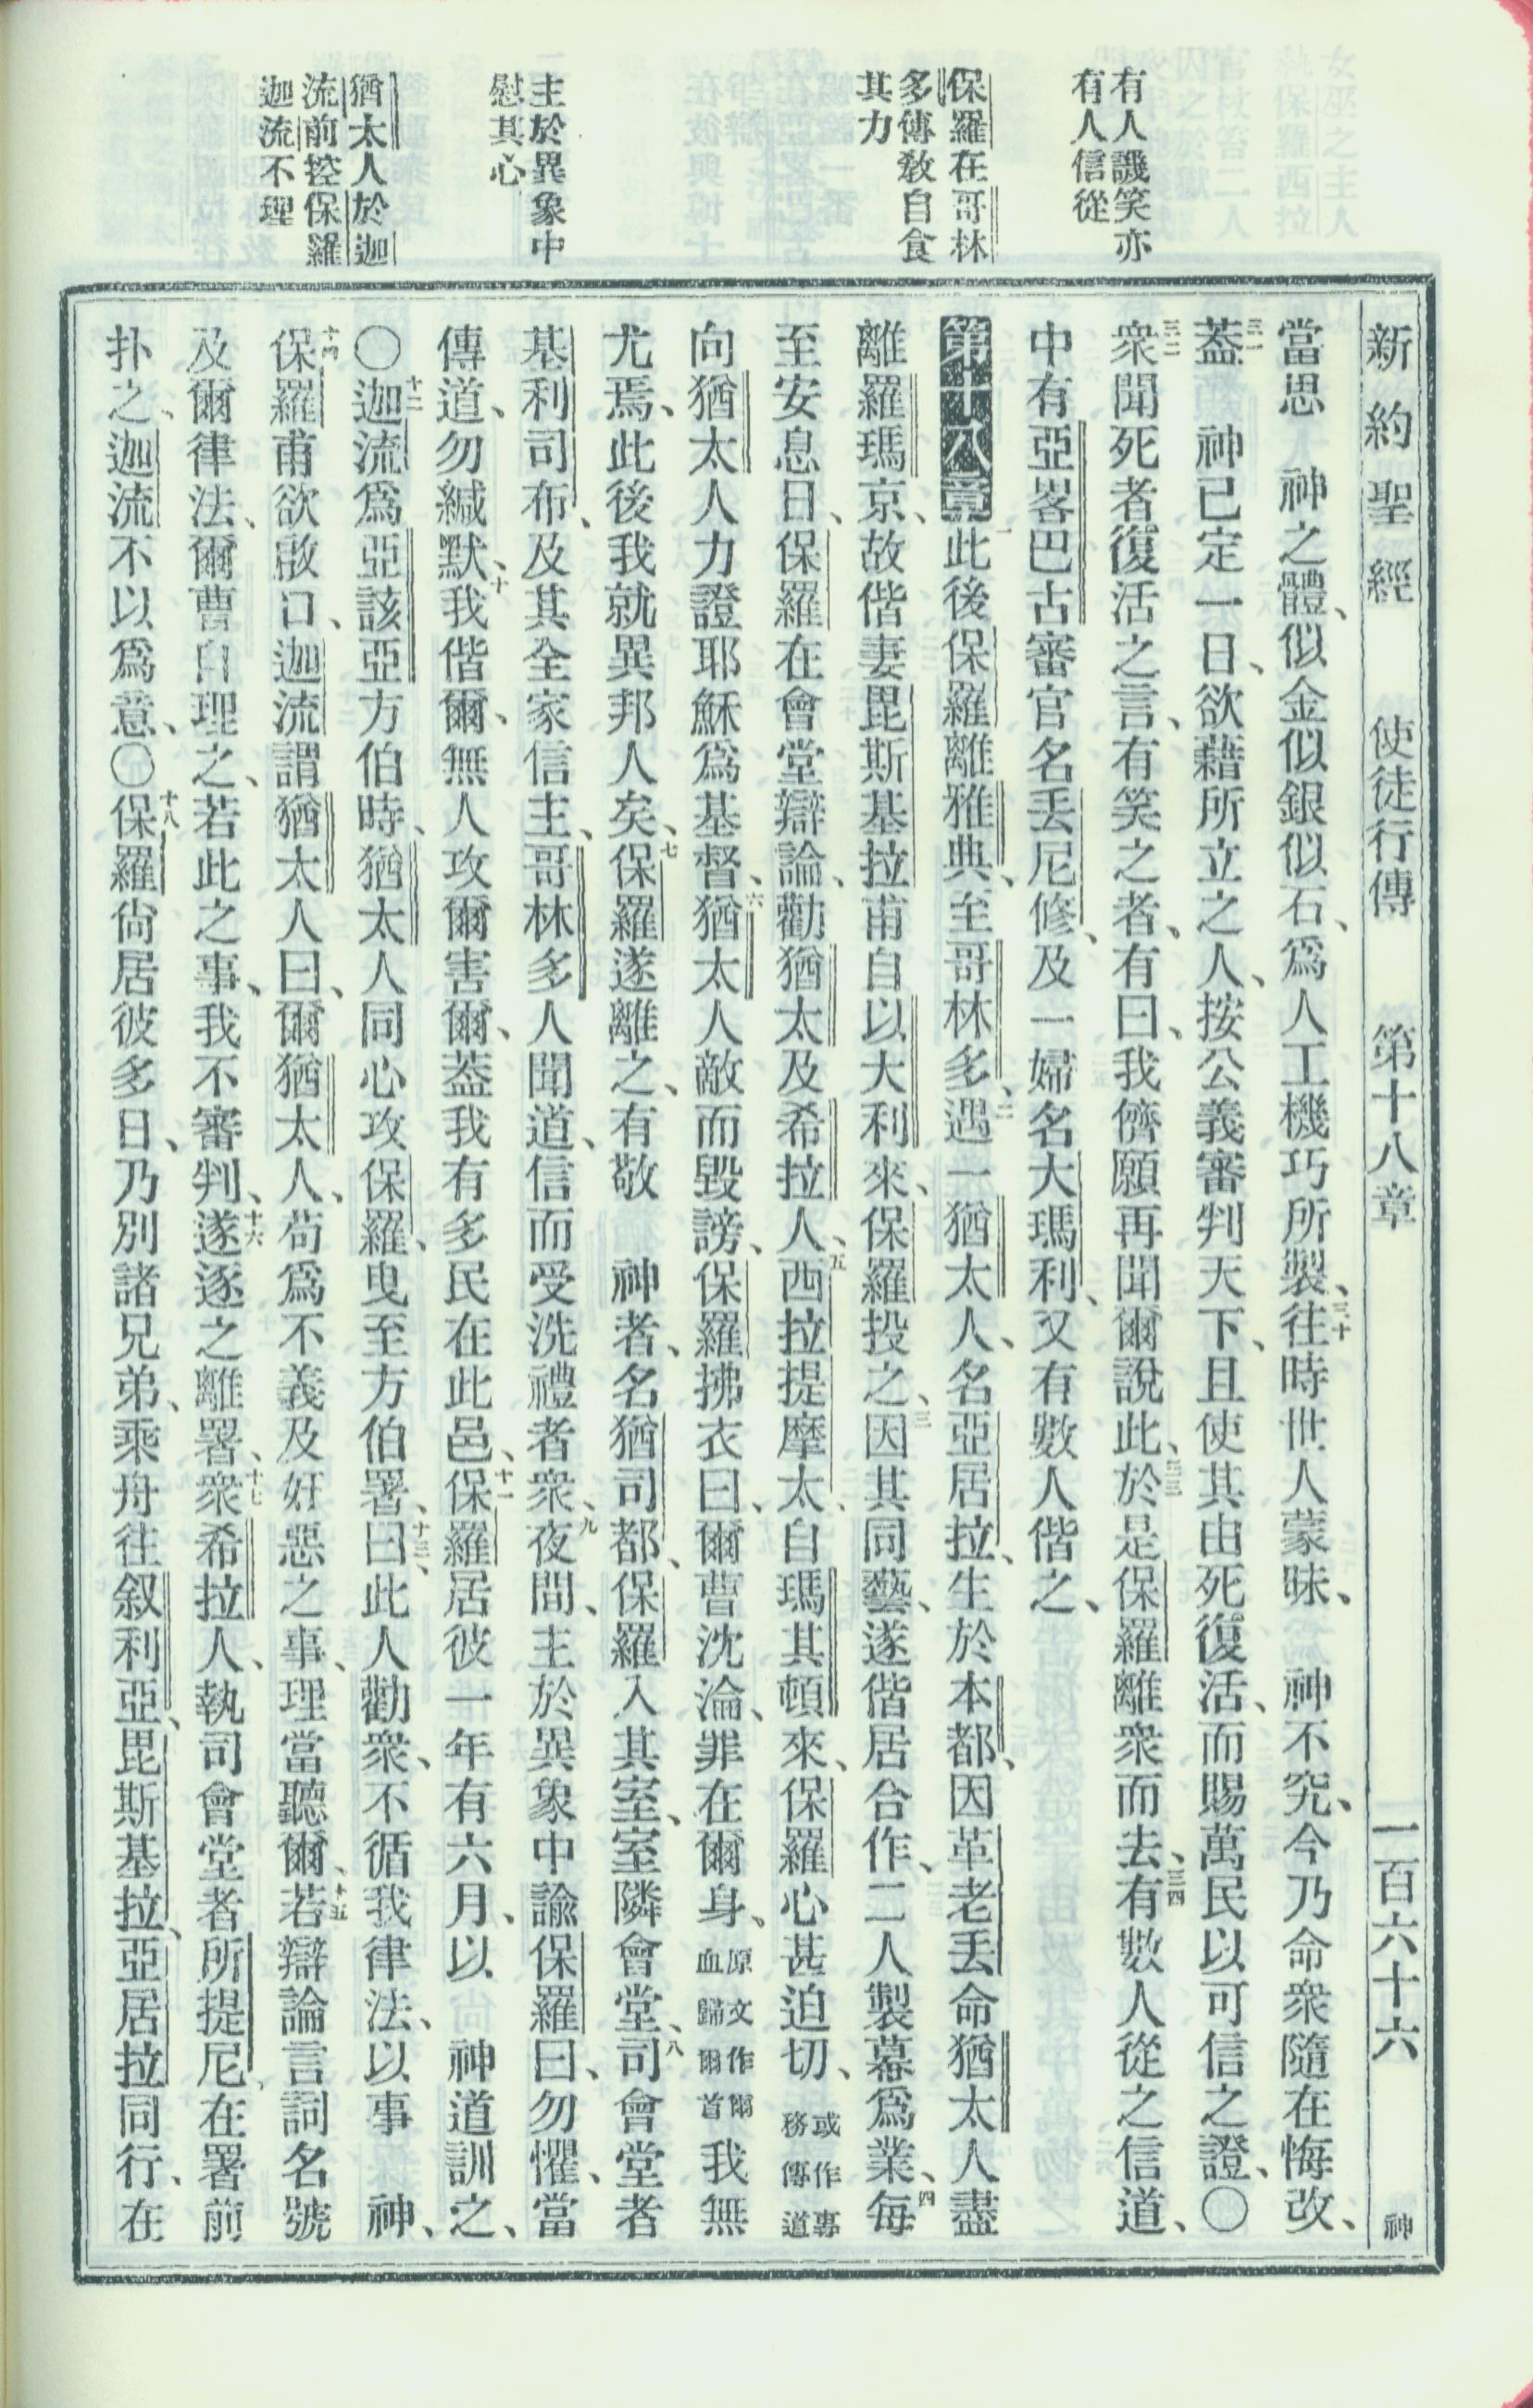 有人譏笑亦
有人信從
保羅在哥林
多傳教自食
其力
主於異象中
慰其心
猶太人於迦
流前控保羅
迦流不理
新約聖經 使徒行傳 第十八章 一百六十六 神
當思 神之體、似金似銀似石、爲人工機巧所製、三十往時世人蒙昧、 神不究、今乃命衆隨在悔改、
三一蓋 神已定一日、欲藉所立之人、按公義審判天下、且使其由死復活、而賜萬民以可信之證、〇
三二衆聞死者復活之言、有笑之者、有曰、我儕願再聞爾說此、三三於是保羅離衆而去、三四有數人從之信道、
中有亞畧巴古審官名丟尼修、及一婦名大瑪利、又有數人偕之、
第十八章一此後保羅離雅典、至哥林多、二遇一猶太人、名亞居拉、生於本都、因革老丟命猶太人盡
離羅瑪京、故偕妻毘斯基拉甫自以大利來、保羅投之、三因其同藝、遂偕居合作、二人製幕爲業、四每
至安息日、保羅在會堂辯論、勸猶太及希拉人、五西拉提摩太、自瑪其頓來、保羅心甚迫切、或作專務傳道
向猶太人力證耶穌爲基督、六猶太人敵而毀謗、保羅拂衣曰、爾曹沈淪、罪在爾身、原文作爾血歸爾首我無
尤焉、此後我就異邦人矣、七保羅遂離之、有敬 神者、名猶司都、保羅入其室、室隣會堂、八司會堂者
基利司布、及其全家信主、哥林多人聞道、信而受洗禮者衆、九夜間、主於異象中諭保羅曰、勿懼、當
傳道、勿緘默、十我偕爾、無人攻爾害爾、蓋我有多民在此邑、十一保羅居彼一年有六月、以 神道訓之、
〇十二迦流爲亞該亞方伯時、猶太人同心攻保羅、曳至方伯署、十三曰、此人勸衆、不循我律法、以事 神、
十四保羅甫欲啟口、迦流謂猶太人曰、爾猶太人、苟爲不義及奸惡之事、理當聽爾、十五若辯論言詞名號
及爾律法、爾曹自理之、若此之事、我不審判、十六遂逐之離署、十七衆希拉人、執司會堂者所提尼、在署前
扑之、迦流不以爲意、〇十八保羅尙居彼多日、乃別諸兄弟、乘舟往叙利亞、毘斯基拉、亞居拉同行、在